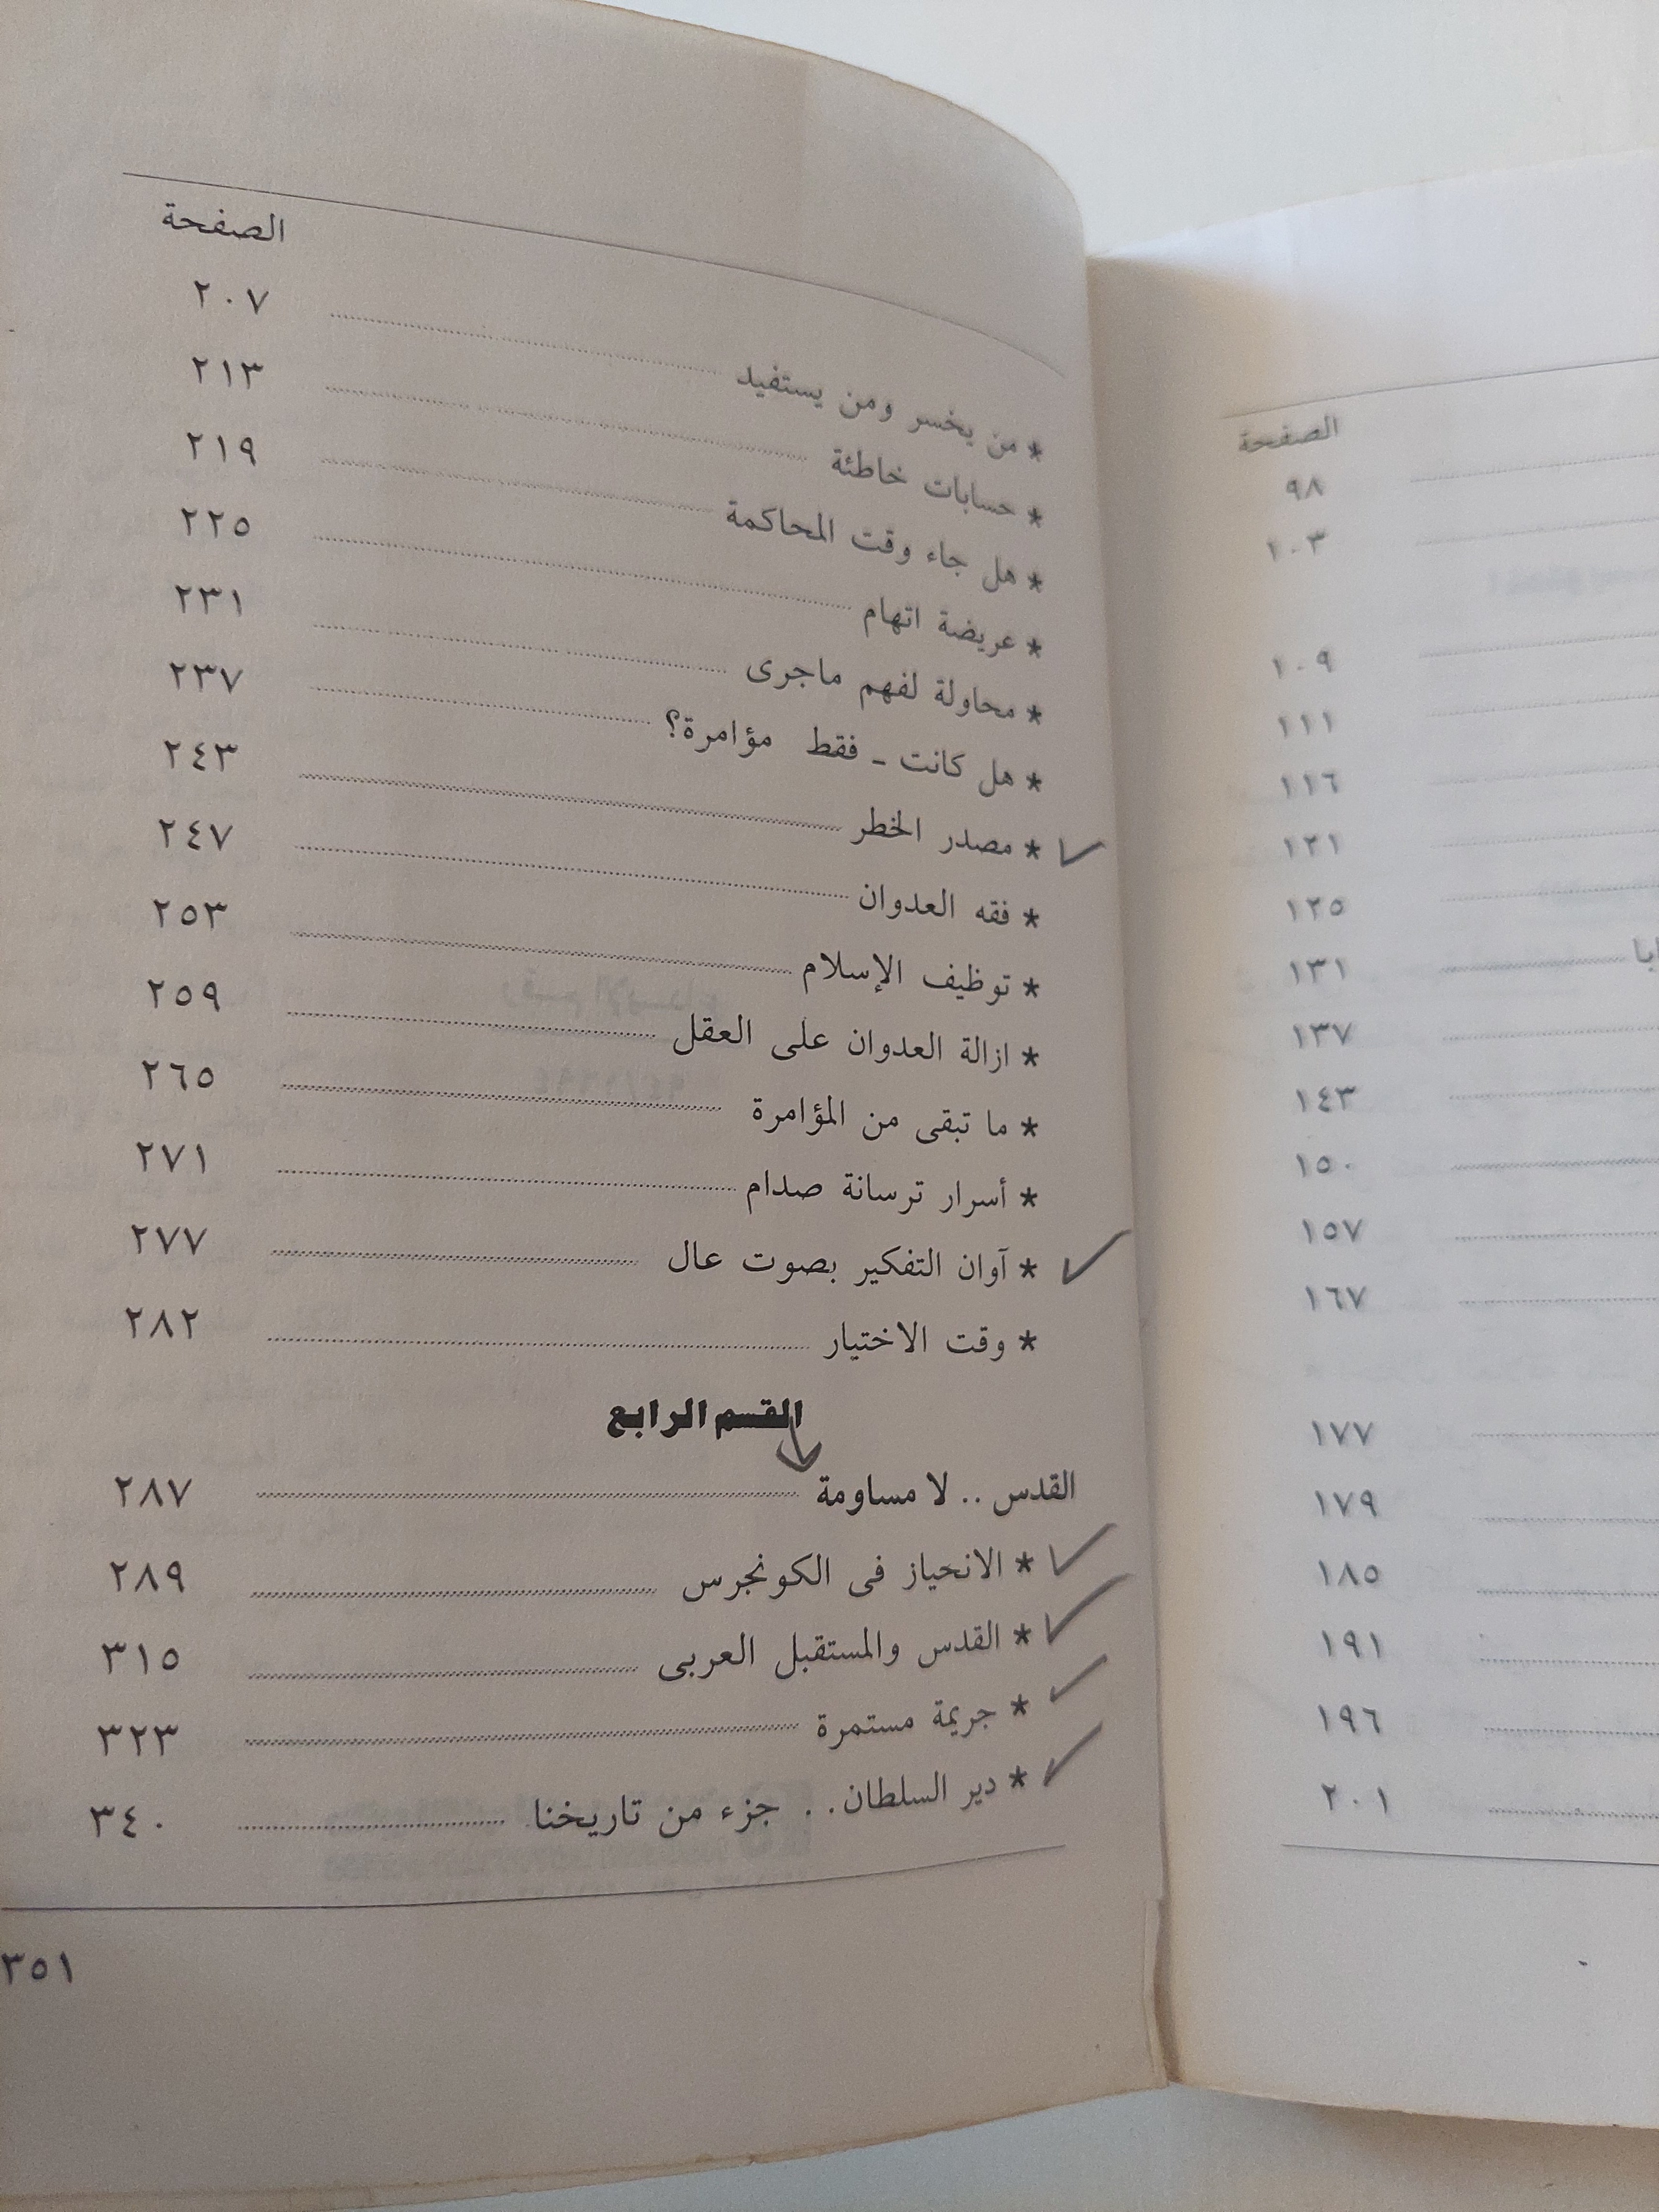 الصفحة
٩٨
١٠٣
١٠٩
١١١
١١٦
١٢١
١٢٥
١٣١
١٣٧
١٤٣
١٥٠
١٥٧
١٦٧
١٧٧
١٧٩
١٨٥
١٩١
١٩٦
٢٠١
الصفحة
* من يخسر ومن يستفيد ٢٠٧
* حسابات خاطئة ٢١٣
* هل جاء وقت المحاكمة ٢١٩
* عريضة اتهام ٢٢٥
* محاولة لفهم ماجرى ٢٣١
* هل كانت ـ فقط مؤامرة؟ ٢٣٧
* مصدر الخطر ٢٤٣
* فقه العدوان ٢٤٧
* توظيف الإسلام ٢٥٣
* ازالة العدوان على العقل ٢٥٩
* ما تبقى من المؤامرة ٢٦٥
* أسرار ترسانة صدام ٢٧١
* آوان التفكير بصوت عال ٢٧٧
* وقت الاختيار ٢٨٢
القسم الرابع
القدس .. لا مساومة ٢٨٧
* الانحياز فى الكونجرس ٢٨٩
* القدس والمستقبل العربى ٣١٥
* جريمة مستمرة ٣٢٣
* دير السلطان .. جزء من تاريخنا ٣٤٠
٣٥١